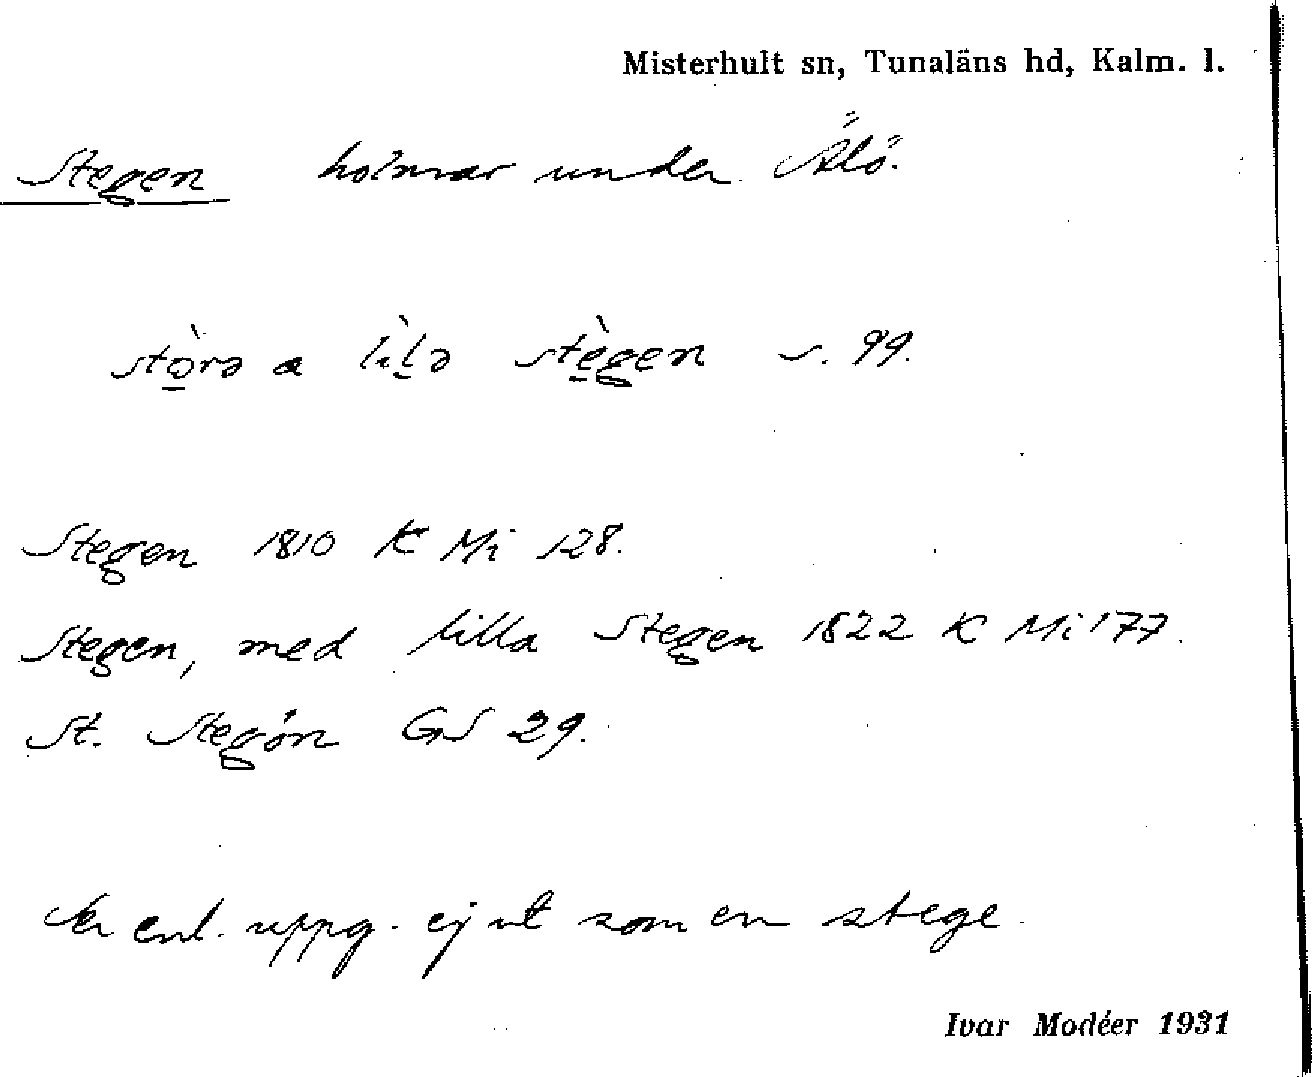 Misterhult sn, Tunaläns hd, Kalm. l.
Stegen holmar under Älö.
stòrə a lìlə stègen s. 99.
Stegen 1810 K Mi 128.
Stegen, med lilla Stegen 1822 K Mi 177.
St. Stegön GS 29.
Ser enl. uppg. ej ut som en stege.
Ivar Modéer 1931